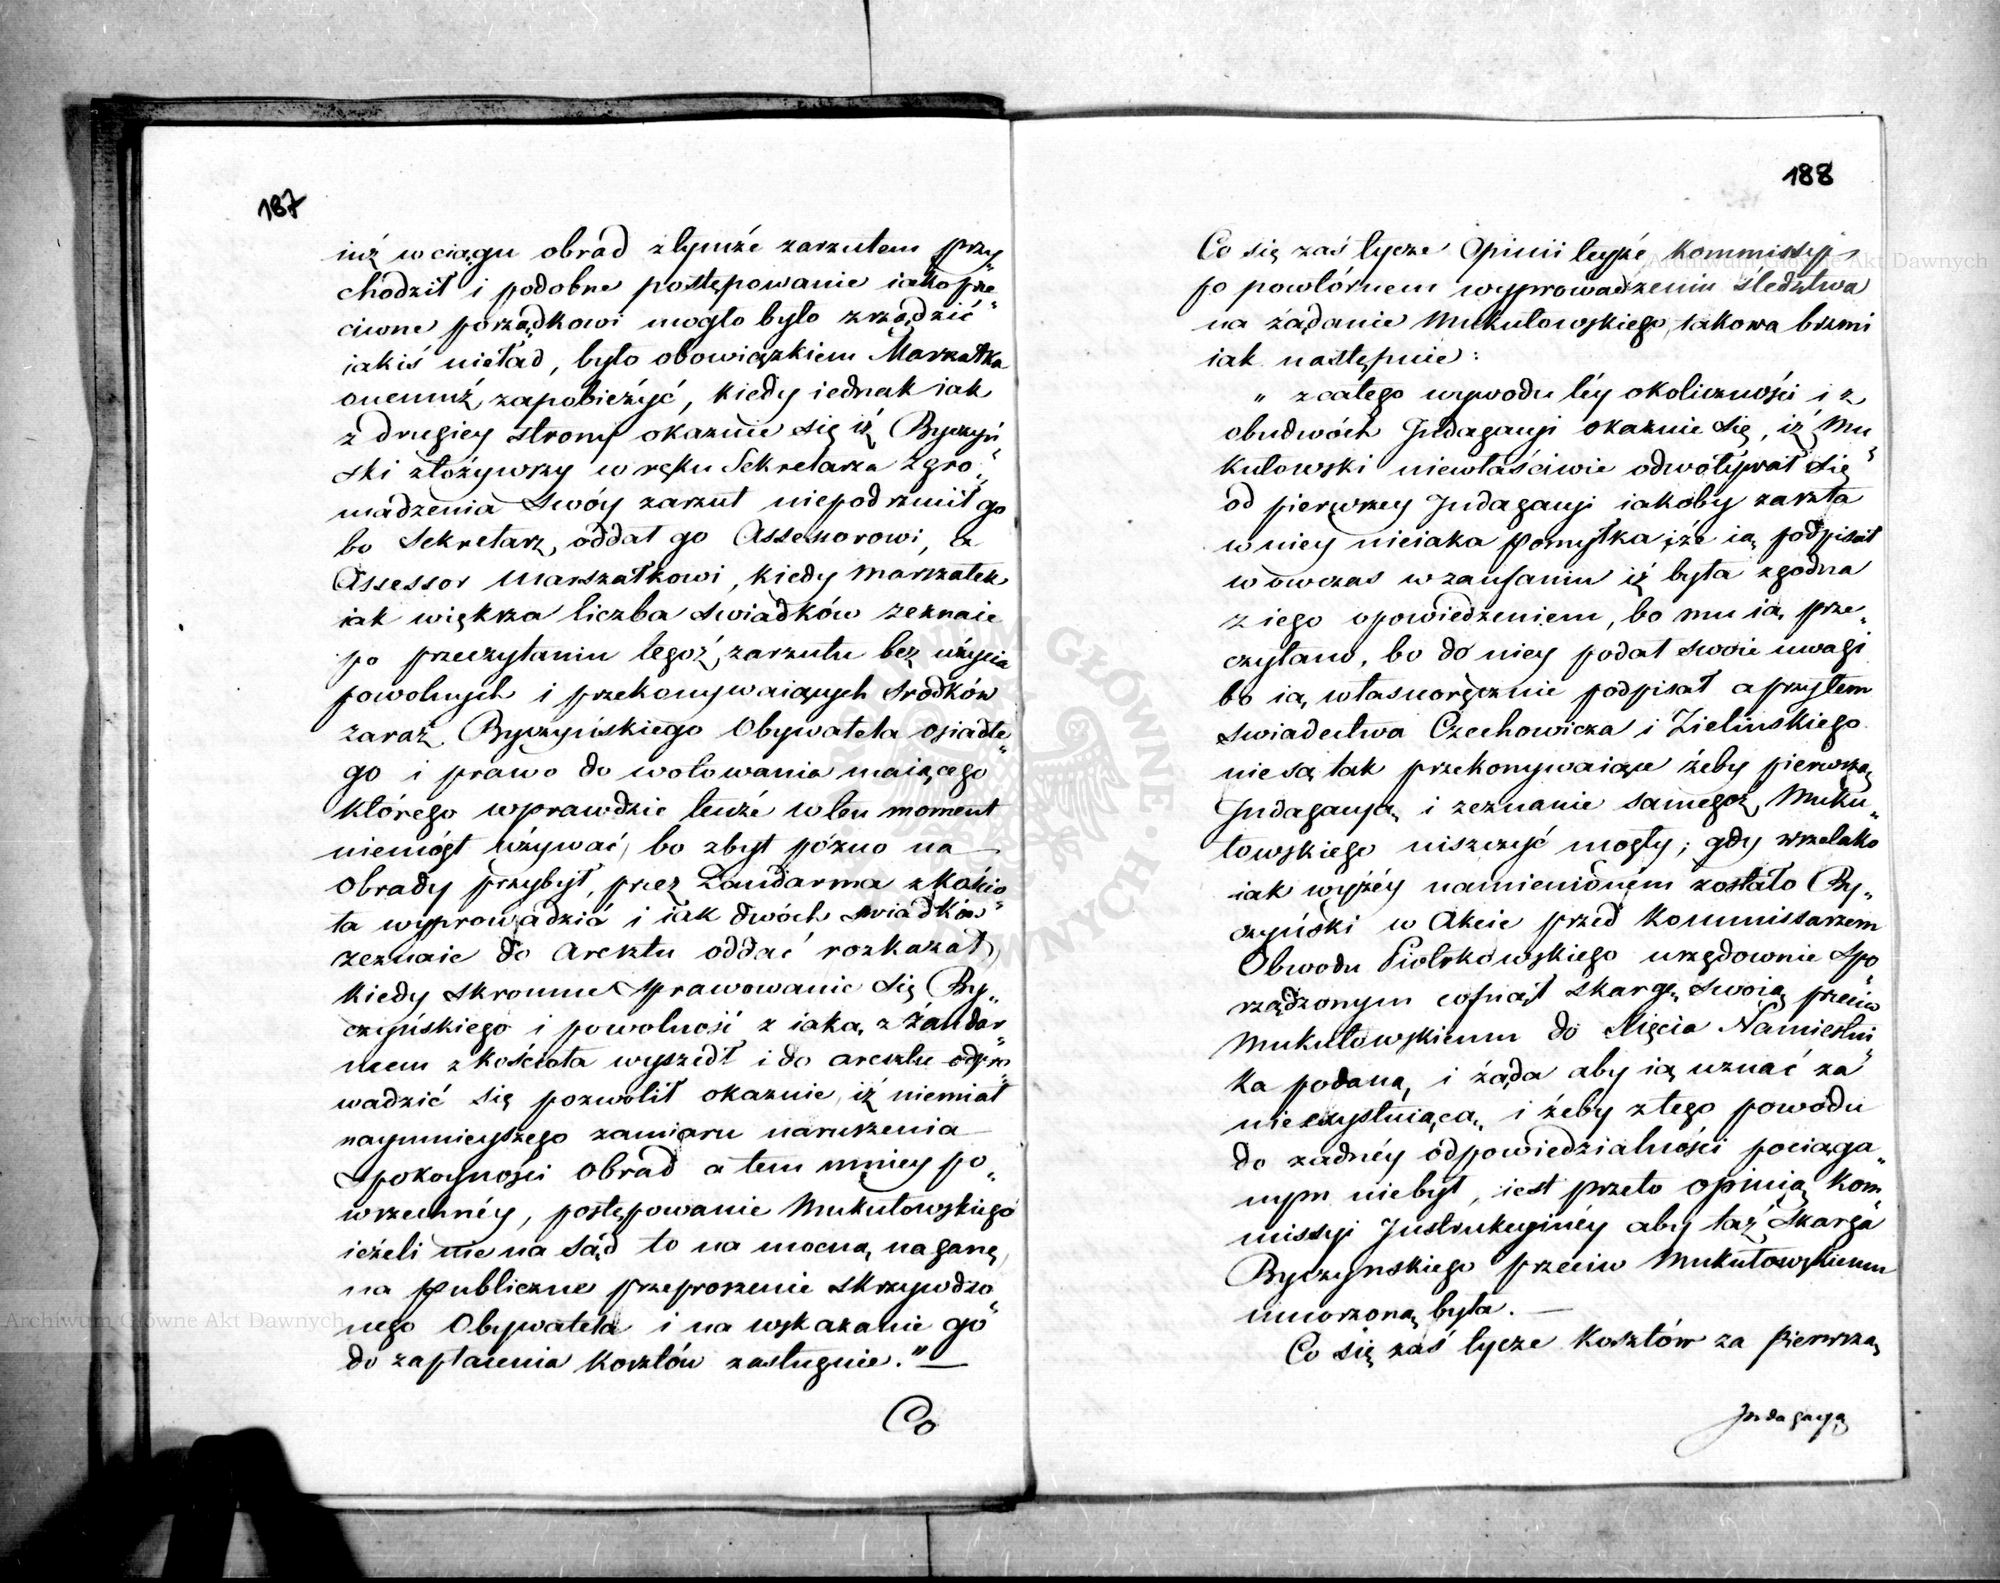 187
iuż w ciągu obrad z tymże zarzutem przy„
chodził i podobne postępowanie iako prze„
ciwne porządkowi mogło było zrządzić
iakiś nieład, było obowiązkiem Marszałka
onemuż zapobieżyć, kiedy iednak iak
z drugiey strony okazuie się iż Byczyń„
ski złożywszy w ręku Sekretarza Zgro„
madzenia swóy zarzut niepodrzucił go
bo Sekretarz oddał go Assessorowi, a
Assessor Marszałkowi, kiedy Marszałek
iak większa liczba swiadków zeznaie
po przeczytaniu tegoż zarzutu bez użycia
powolnych i przekonywaiących srodków
zaraz Byczyńskiego Obywatela osiadłe„
go i prawo do wotowania maiącego
którego wprawdzie tenże w ten moment
niemógł używać, bo zbyt późno na
Obrady przybył, przez Żandarma z Kościo„
ła wyprowadzić i iak dwóch swiadków
zeznaie do Aresztu oddać rozkazał,
kiedy skromne sprawowanie się By„
czyńskiego i powolność z iaką z Żandar„
mem z kościoła wyszedł i do aresztu odpro„
wadzić się pozwolił okazuie, iż niemiał
naymnieyszego zamiaru naruszenia
spokoyności Obrad a tem mniey po„
wszechnéy, postępowanie Mukułowskiego
ieżeli nie na Sąd to na mocną naganę,
na publiczne przeproszenie skrzywdzo„
nego Obywatela i na wskazanie go
do zapłacenia kosztów zasługuie."—
Co
188
Co się zaś tycze Opinii teyże Kommissyi
po powtórnem wyprowadzeniu śledztwa
na żądanie Mukułowskiego, takowa brzmi
iak następnie:
„ z całego wywodu téy okoliczności i z
obudwóch Indagacyi okazuie się, iż Mu„
kułowski niewłaściwie odwoływał się
od pierwszey Indagacyi iakoby zaszła
w niey nieiaka pomyłka i że ią podpisał
wówczas w zaufaniu iż była zgodna
z iego opowiedzeniem, bo mu ią prze„
czytano, bo do niey podał swoie uwagi
bo ią własnoręcznie podpisał a przytem
swiadectwa Czechowicza i Zielińskiego
nie są tak przekonywaiące żeby pierwszą
Indagacyą i zeznanie samegoż Muku„
łowskiego niszczyć mogły; gdy wszelako
iak wyżéy namienioném zostało By„
czyński w Akcie przed Kommissarzem
Obwodu Piotrkowskiego urzędownie spo„
rządzonym cofnął skargę swoią przeciw
Mukułowskiemu do Xięcia Namiestni„
ka podaną, i żąda aby ią uznać za
nieczystniącą, i żeby z tego powodu
do żadnéy odpowiedzialności pociąga„
nym niebył, iest przeto opinią Kom„
missyi Instrukcyinéy aby taż skarga
Byczynskiego przeciw Mukułowskiemu
umorzoną była. —
Co się zaś tycze kosztów za pierwszą
Indagacyą